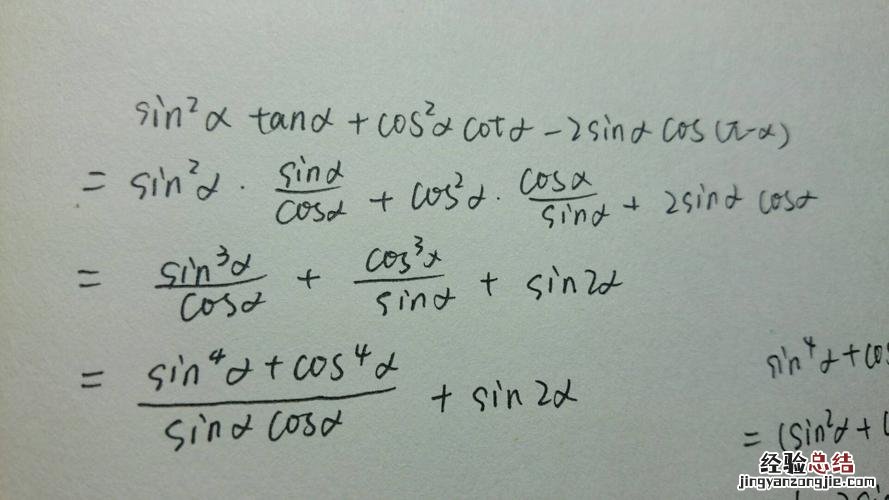 sin²α tanα + cos²α cotα − 2sinα cos(π−α)
= sin²α · sinα/cosα + cos²α · cosα/sinα + 2sinα cosα
= sin³α/cosα + cos³α/sinα + sin2α
= (sin⁴α + cos⁴α)/(sinα cosα) + sin2α
sin⁴α + cos
= (sin²α + (
2sin
经验总结
jingyanzongjie.com